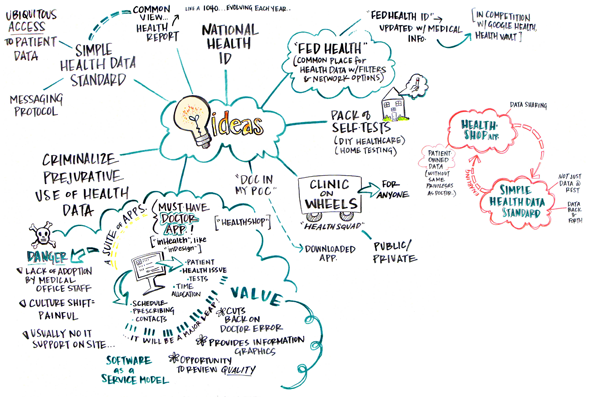 UBIQUITOUS
ACCESS
TO PATIENT
DATA
SIMPLE
HEALTH DATA
STANDARD
MESSAGING
PROTOCOL
COMMON
VIEW...
HEALTH
REPORT
LIKE A 1040... EVOLVING EACH YEAR...
NATIONAL
HEALTH
ID
"FED HEALTH"
(COMMON PLACE FOR
HEALTH DATA W/FILTERS
& NETWORK OPTIONS)
"FEDHEALTH ID"
UPDATED W/MEDICAL
INFO.
[IN COMPETITION
W/GOOGLE HEALTH,
HEALTH VAULT]
ideas
PACK OF
SELF-TESTS
(DIY HEALTHCARE)
(HOME TESTING)
CRIMINALIZE
PREJURATIVE
USE OF HEALTH
DATA
"DOC IN
MY POC"
CLINIC
ON
WHEELS
"HEALTH SQUAD"
FOR
ANYONE
DOWNLOADED
APP.
PUBLIC/
PRIVATE
DATA SHARING
HEALTH-
SHOP APP.
PATIENT
OWNED
DATA
(WITHOUT
SAME
PRIVILEGES
AS DOCTOR)
SIMPLE
HEALTH DATA
STANDARD
NOT JUST
DATA @
REST
DATA
BACK &
FORTH
A SUITE OF APPS.
(MUST-HAVE
DOCTOR
APP.!
["inHealth", like
"inDesign"]
["HEALTHSHOP"]
• PATIENT
• HEALTH ISSUE
• TESTS
• TIME
ALLOCATION
• SCHEDULE
• PRESCRIBING
• CONTACTS
...IT WILL BE A MAJOR LEAP!
DANGER
LACK OF ADOPTION
BY MEDICAL
OFFICE STAFF
CULTURE SHIFT =
PAINFUL
USUALLY NO IT
SUPPORT ON SITE...
SOFTWARE
AS A
SERVICE MODEL
VALUE
CUTS
BACK ON
DOCTOR ERROR
PROVIDES INFORMATION
GRAPHICS
OPPORTUNITY
TO REVIEW QUALITY